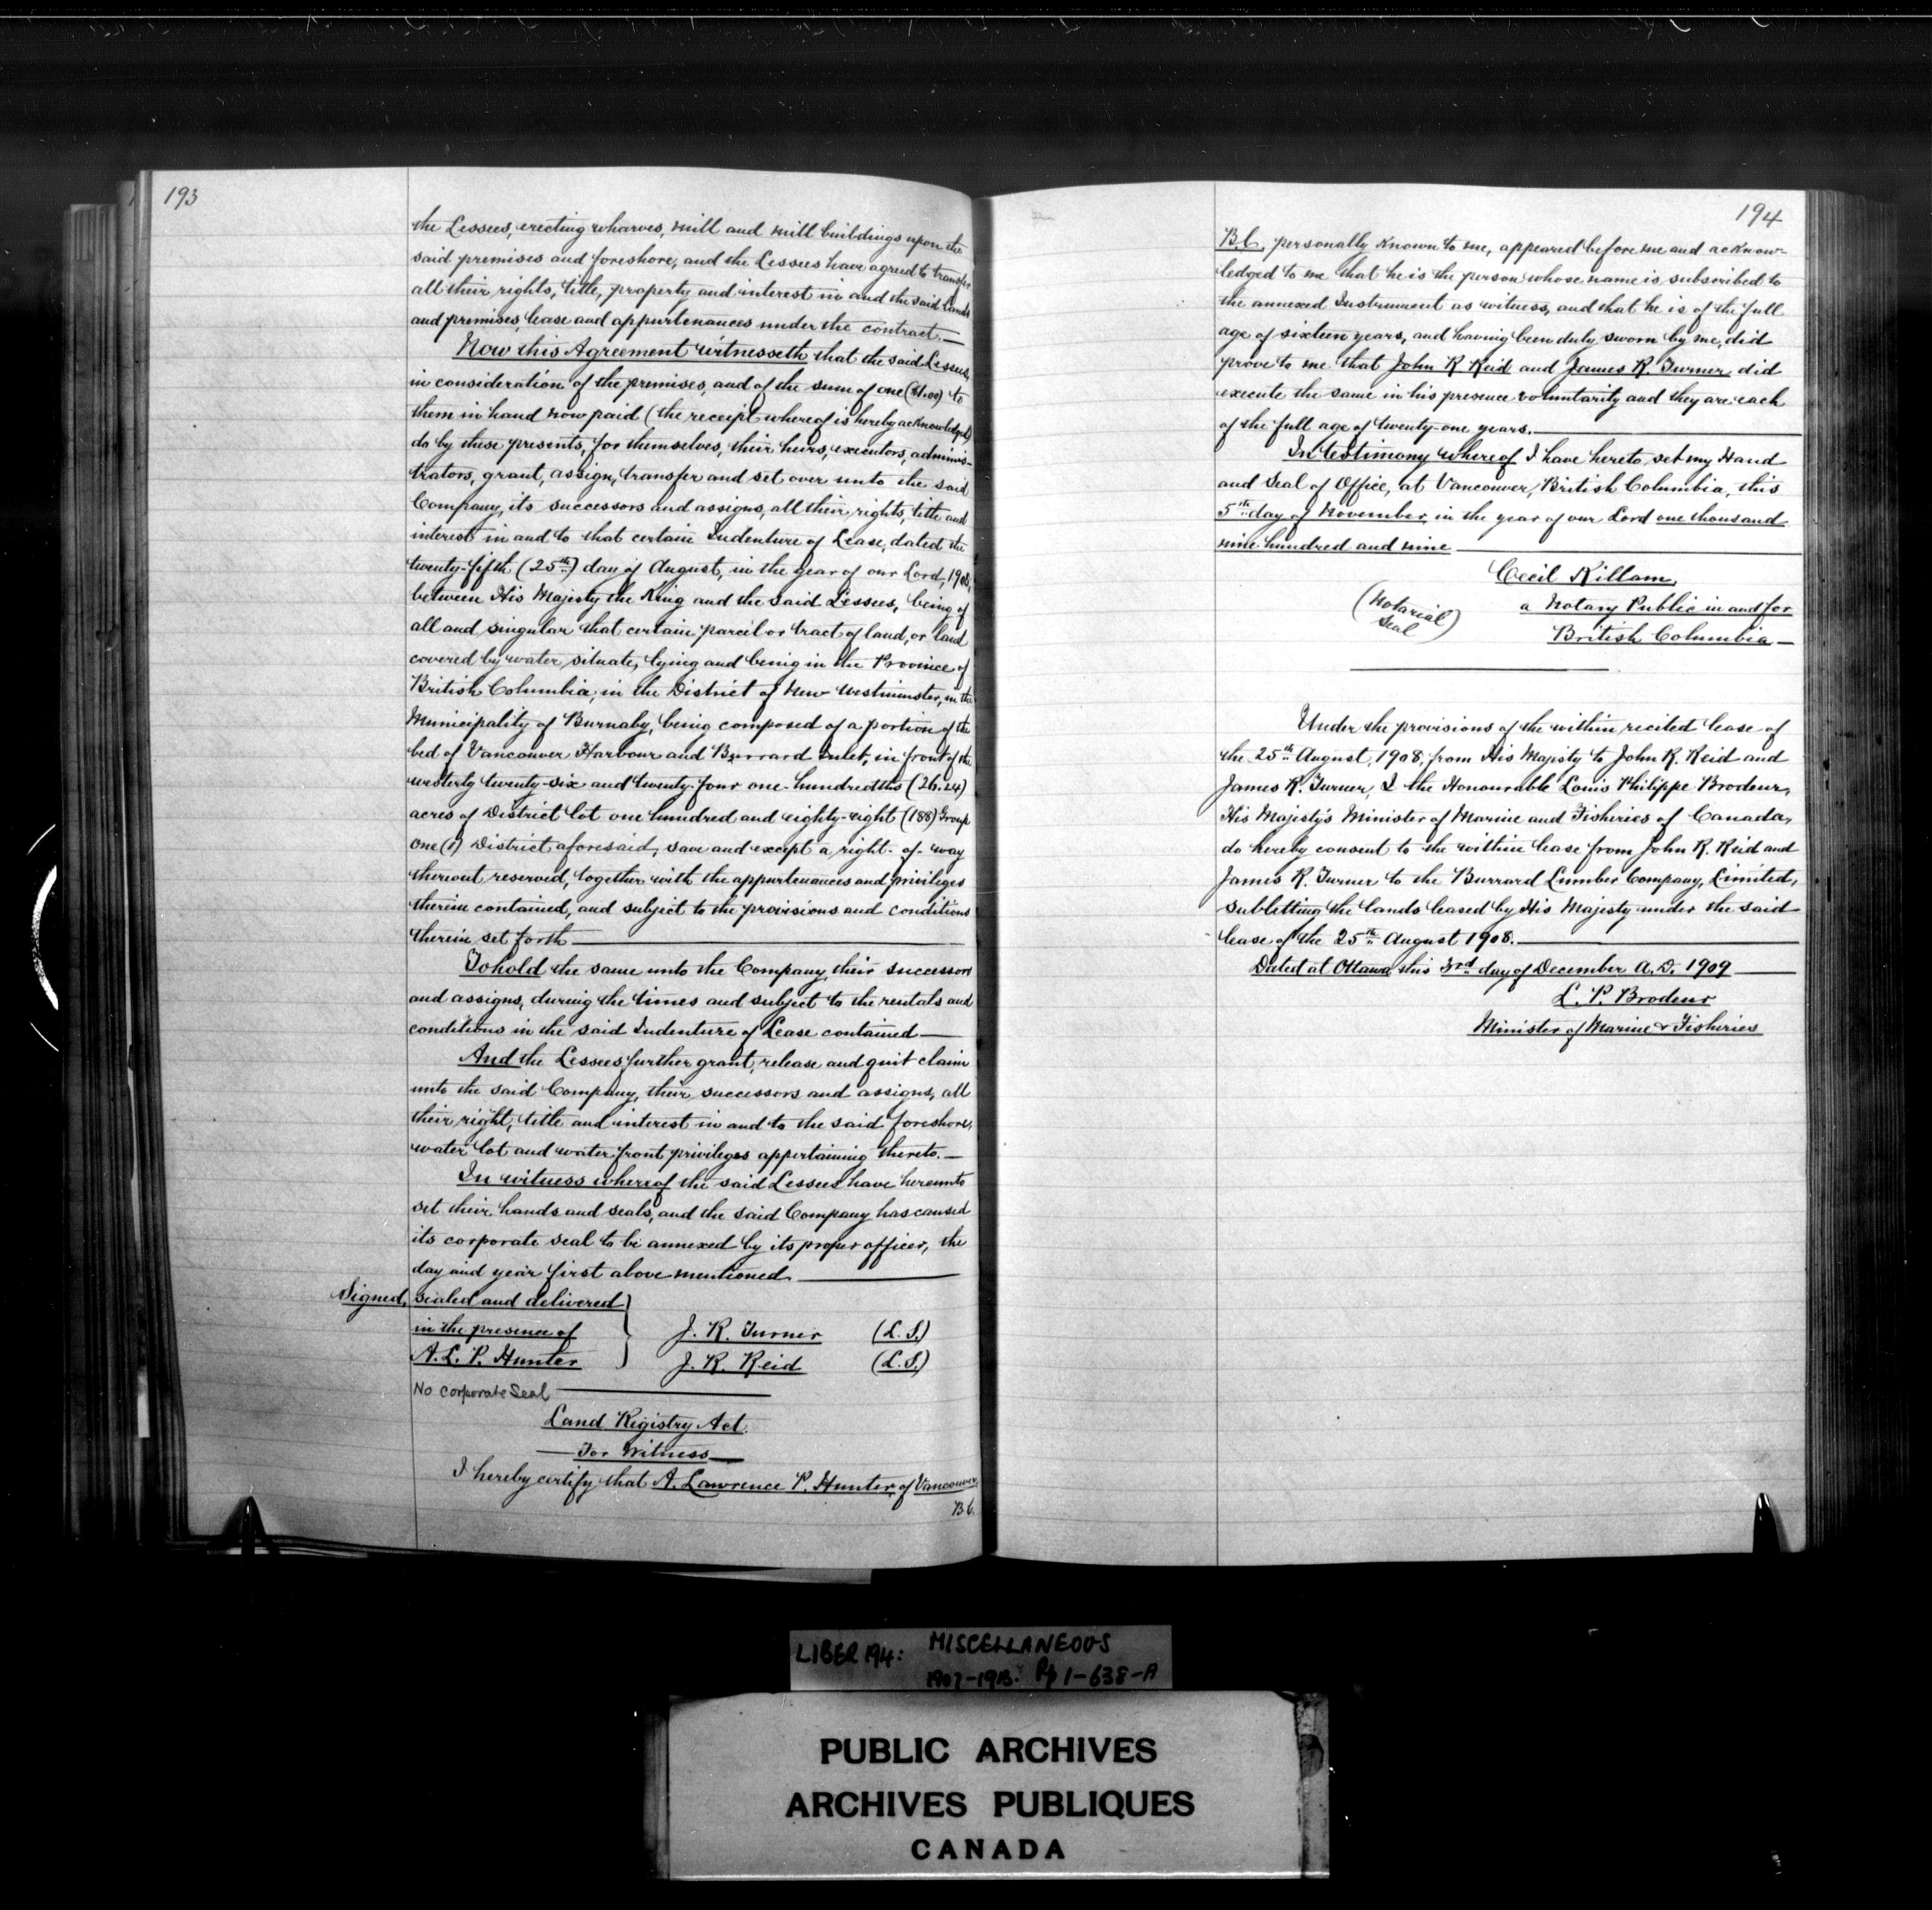 193
the Lessees, erecting wharves, mill and mill buildings upon the
said premises and foreshore, and the Lessees have agreed to transfer
all their rights, title, property and interest in and the said Lands
and premises, lease and appurtenances under the contract.—
Now this Agreement witnesseth that the said Lessees,
in consideration of the premises, and of the sum of one ($1.00) to
them in hand now paid (the receipt whereof is hereby acknowledged)
do by these presents, for themselves, their heirs, executors, adminis-
trators, grant, assign, transfer and set over unto the said
Company, its successors and assigns, all their rights, title and
interest in and to that certain Indenture of Lease, dated the
twenty-fifth (25th) day of August, in the year of our Lord, 1908,
between His Majesty the King and the said Lessees, being of
all and singular that certain parcel or tract of land, or land
covered by water, situate, lying and being in the Province of
British Columbia, in the District of New Westminster, in the
Municipality of Burnaby, being composed of a portion of the
bed of Vancouver Harbour and Burrard Inlet, in front of the
westerly twenty-six and twenty-four one-hundredths (26.24)
acres of District Lot one hundred and eighty-eight (188) Group
one (1) District aforesaid, save and except a right-of-way
thereout reserved, together with the appurtenances and privileges
therein contained, and subject to the provisions and conditions
therein set forth
To hold the same unto the Company, their successors
and assigns, during the times and subject to the rentals and
conditions in the said Indenture of Lease contained—
And the Lessees further grant, release and quit claim
unto the said Company, their successors and assigns, all
their right, title and interest in and to the said foreshore,
water lot and water front privileges appertaining thereto.—
In witness whereof the said Lessees have hereunto
set their hands and seals, and the said Company has caused
its corporate seal to be annexed by its proper officer, the
day and year first above mentioned
Signed, sealed and delivered
in the presence of J. R. Turner (L.S.)
A. L. P. Hunter J. R. Reid (L.S.)
No corporate Seal
Land Registry Act.
— For Witness —
I hereby certify that A. Lawrence P. Hunter of Vancouver,
B.C.
194
B.C. personally known to me, appeared before me and acknow-
ledged to me that he is the person whose name is subscribed to
the annexed Instrument as witness, and that he is of the full
age of sixteen years, and having been duly sworn by me, did
prove to me that John R Reid and James R. Turner did
execute the same in his presence voluntarily and they are each
of the full age of twenty-one years.
In testimony whereof I have hereto set my Hand
and Seal of Office, at Vancouver, British Columbia, this
5th day of November, in the year of our Lord one thousand
nine hundred and nine
Cecil Killam,
(Notarial Seal) a Notary Public in and for
British Columbia —
Under the provisions of the within recited lease of
the 25th August, 1908, from His Majesty to John R. Reid and
James R. Turner, I the Honourable Louis Philippe Brodeur,
His Majesty's Minister of Marine and Fisheries of Canada,
do hereby consent to the within lease from John R. Reid and
James R. Turner to the Burrard Lumber Company, Limited,
subletting the lands leased by His Majesty under the said
lease of the 25th August 1908.
Dated at Ottawa this 3rd day of December A.D. 1909
L. P. Brodeur
Minister of Marine & Fisheries
LIBER 194: MISCELLANEOUS
1907-1913. Pp 1-638-A
PUBLIC ARCHIVES
ARCHIVES PUBLIQUES
CANADA